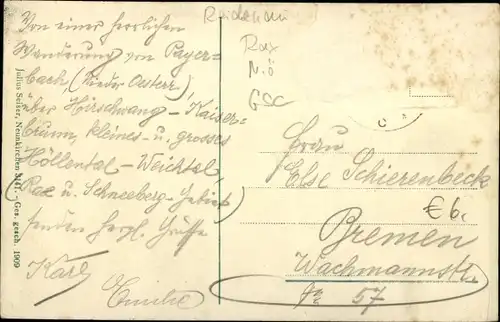 Von einer herrlichen
Wanderung von Payer-
bach, (Nieder Oesterr.)
über Hirschwang - Kaiser-
brunn, kleines - u. grosses
Höllental - Weichtal
(Rax u. Schneeberg - Gebiet)
senden herzl. Grüsse
Karl
Emilie
Julius Seiser, Neunkirchen - Ges. gesch. 1909
Reichenau
Rax
N.Ö
Frau
Else Schierenbeck
€ 6.
Bremen
Wachmannstr.
No 57